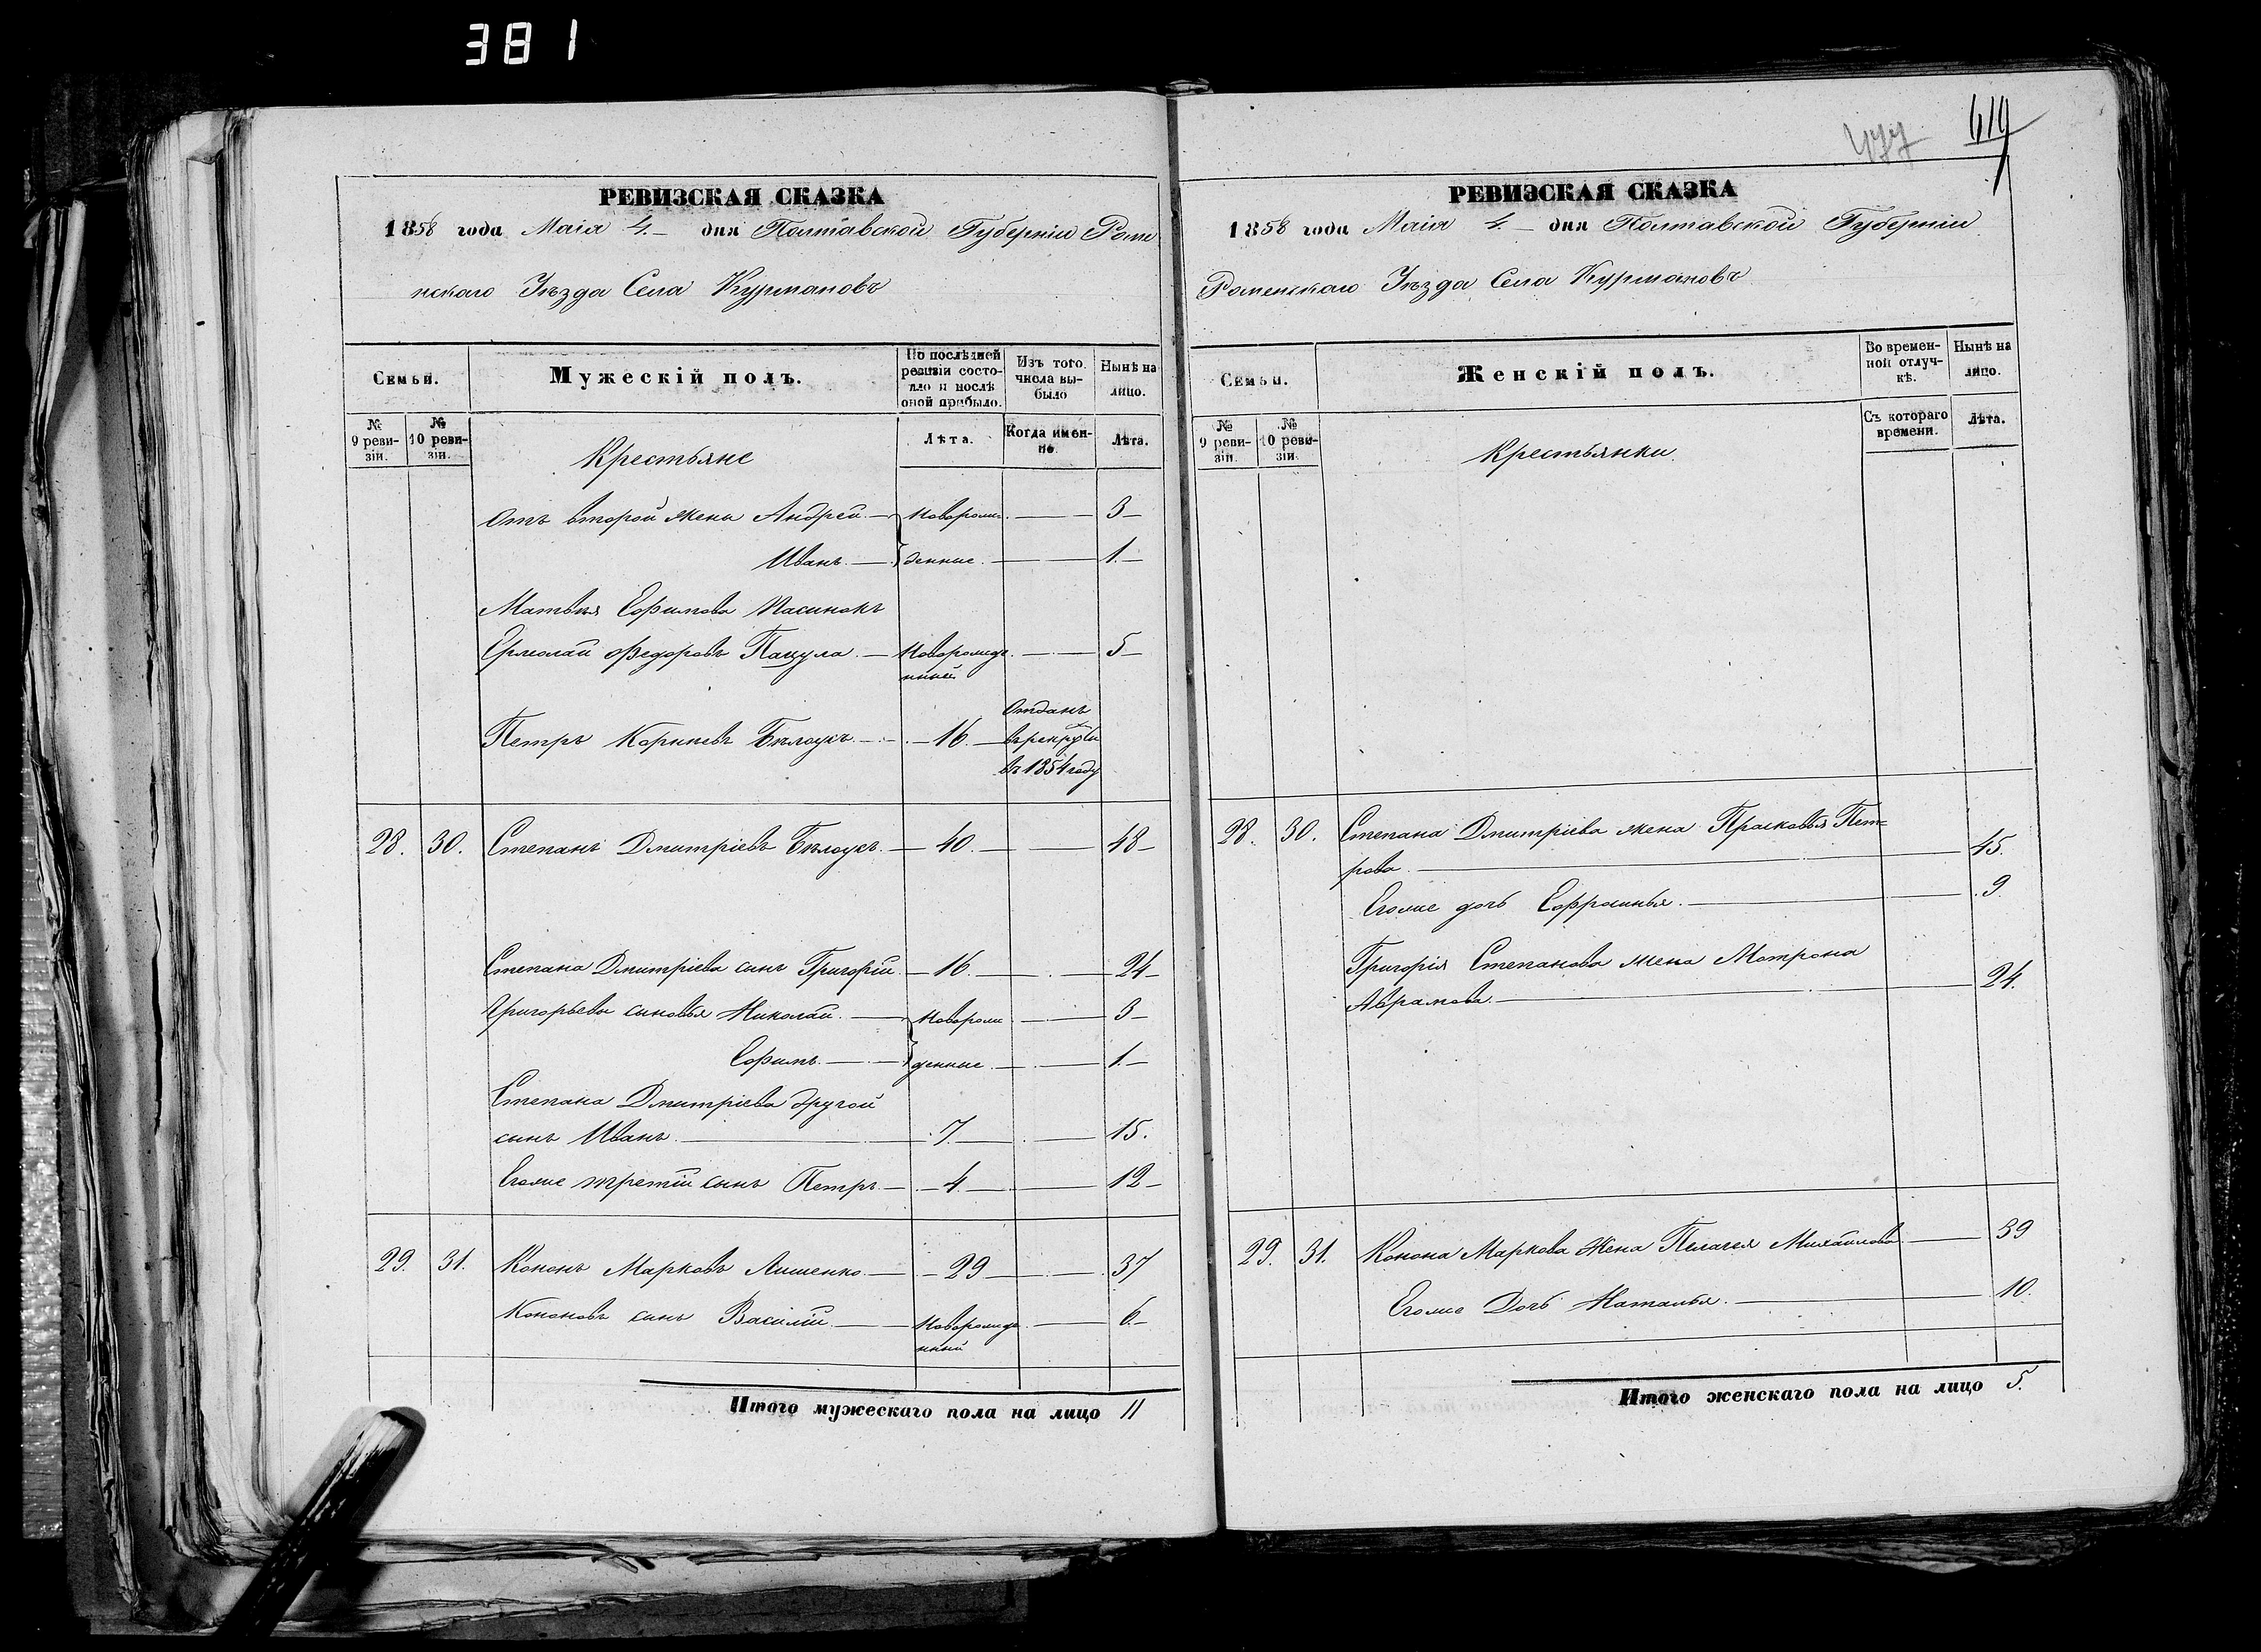 381
477
619
РЕВИЗСКАЯ СКАЗКА
1858 года Маія 4.— дня Полтавской Губерніи Роме
нскаго Уѣзда Села Курмановъ
Семьи.
Мужескій полъ.
По послѣдней ревизіи состояло и послѣ оной прибыло.
Изъ того числа выбыло
Нынѣ на лицо.
№ 9 ревизіи.
№ 10 ревизіи.
Лѣта.
Когда именно.
Лѣта.
Крестьяне
Отъ второй жены Андрей — новорож — 3 —
Иванъ — денные — 1 —
Матвѣя Ефимова пасинокъ
Ермолай Федоровъ Пацула — новорожде — 5 —
нный
Отданъ
Петръ Корнѣевъ Бѣлоусъ — 16 — въ рекруты
въ 1854 году
28. 30. Степанъ Дмитріевъ Бѣлоусъ — 40 — 48 —
Степана Дмитріева сынъ Григорій — 16 — 24 —
Григорьевы сыновья Николай — новорож — 3 —
Ефимъ — денные — 1 —
Степана Дмитріева другой
сынъ Иванъ — 7 — 15.
Егоже третій сынъ Петръ — 4 — 12 —
29. 31. Кононъ Марковъ Лишенко — 29 — 37
Кононовъ сынъ Василій — новорожде — 6 —
нный
Итого мужескаго пола на лицо 11
РЕВИЗСКАЯ СКАЗКА
1858 года Маія 4.— дня Полтавской Губерніи
Роменскаго Уѣзда Села Курмановъ
Семьи.
Женскій полъ.
Во временной отлучкѣ.
Нынѣ на лицо.
№ 9 ревизіи.
№ 10 ревизіи.
Съ котораго времени.
Лѣта.
Крестьянки
28. 30. Степана Дмитріева жена Прасковья Пет=
рова — 45.
Егоже дочь Ефросинья — 9
Григорія Степанова жена Матрона
Аврамова — 24.
29. 31. Конона Маркова Жена Пелагея Михайлова — 39
Егоже Дочь Наталья — 10.
Итого женскаго пола на лицо 5.